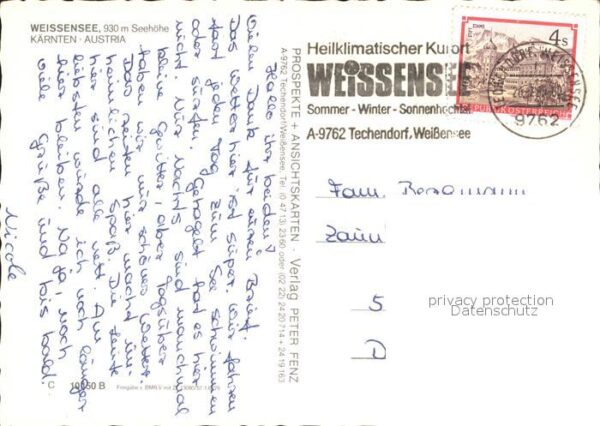 WEISSENSEE, 930 m Seehöhe
KÄRNTEN · AUSTRIA
Hallo ihr beiden!
Vielen Dank für euren Brief.
Das Wetter hier ist super, wir fahren
fast jeden Tag zum See schwimmen
oder surfen. Gehagelt hat es hier
nicht. Nur nachts sind manchmal
kleine Gewitter, aber tagsüber
haben wir nur schönes Wetter.
Das reiten hier macht un-
heimlichen Spaß. Die Leute
hier sind alle nett. Am
liebsten würde ich noch länger
hier bleiben. Na ja, noch
viele Grüße und bis bald.
Nicole
PROSPEKTE + ANSICHTSKARTEN · Verlag PETER FENZ
A-9762 Techendorf/Weißensee, Tel. (0 47 13) 23 60 oder (02 22) 24 20 714 + 24 19 163
C 10150 B
Heilklimatischer Kurort
WEISSENSEE
Sommer - Winter - Sonnenhochtal
A-9762 Techendorf, Weißensee
4 S
REPUBLIK ÖSTERREICH
9762
Fam.
5
D
privacy protection
Datenschutz